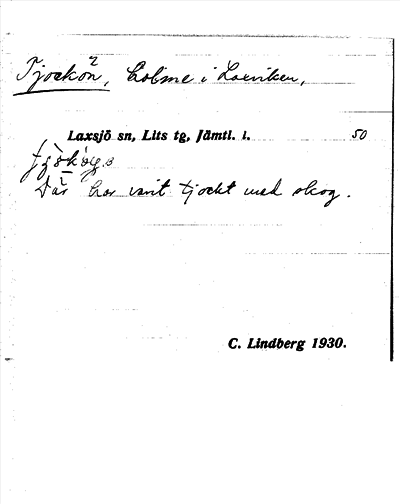 Tjockön 2, holme i Laxviken,
Laxsjö sn, Lits tg, Jämtl. l. 50
Där har varit tjockt med skog.
C. Lindberg 1930.